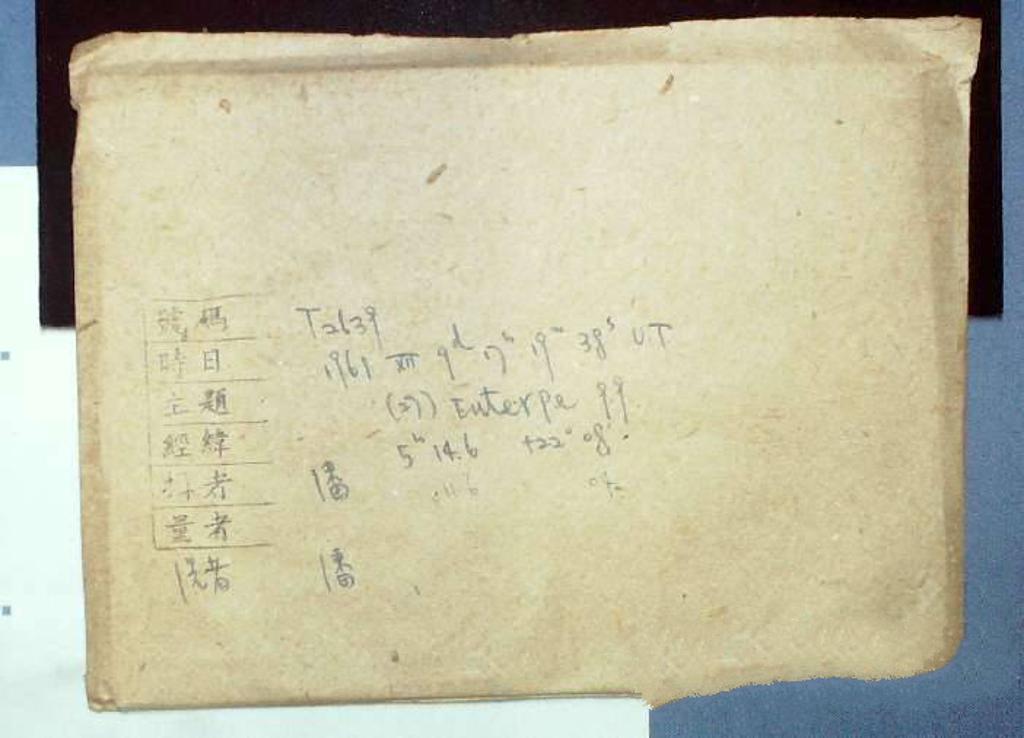 號碼 T2639
時日 1961 XII 9d 17h 19m 38s UT
主題 (27) Euterpe 99
經緯 5h 14.6 +22° 08'
拍者 潘
.11.6
量者
洗者 潘